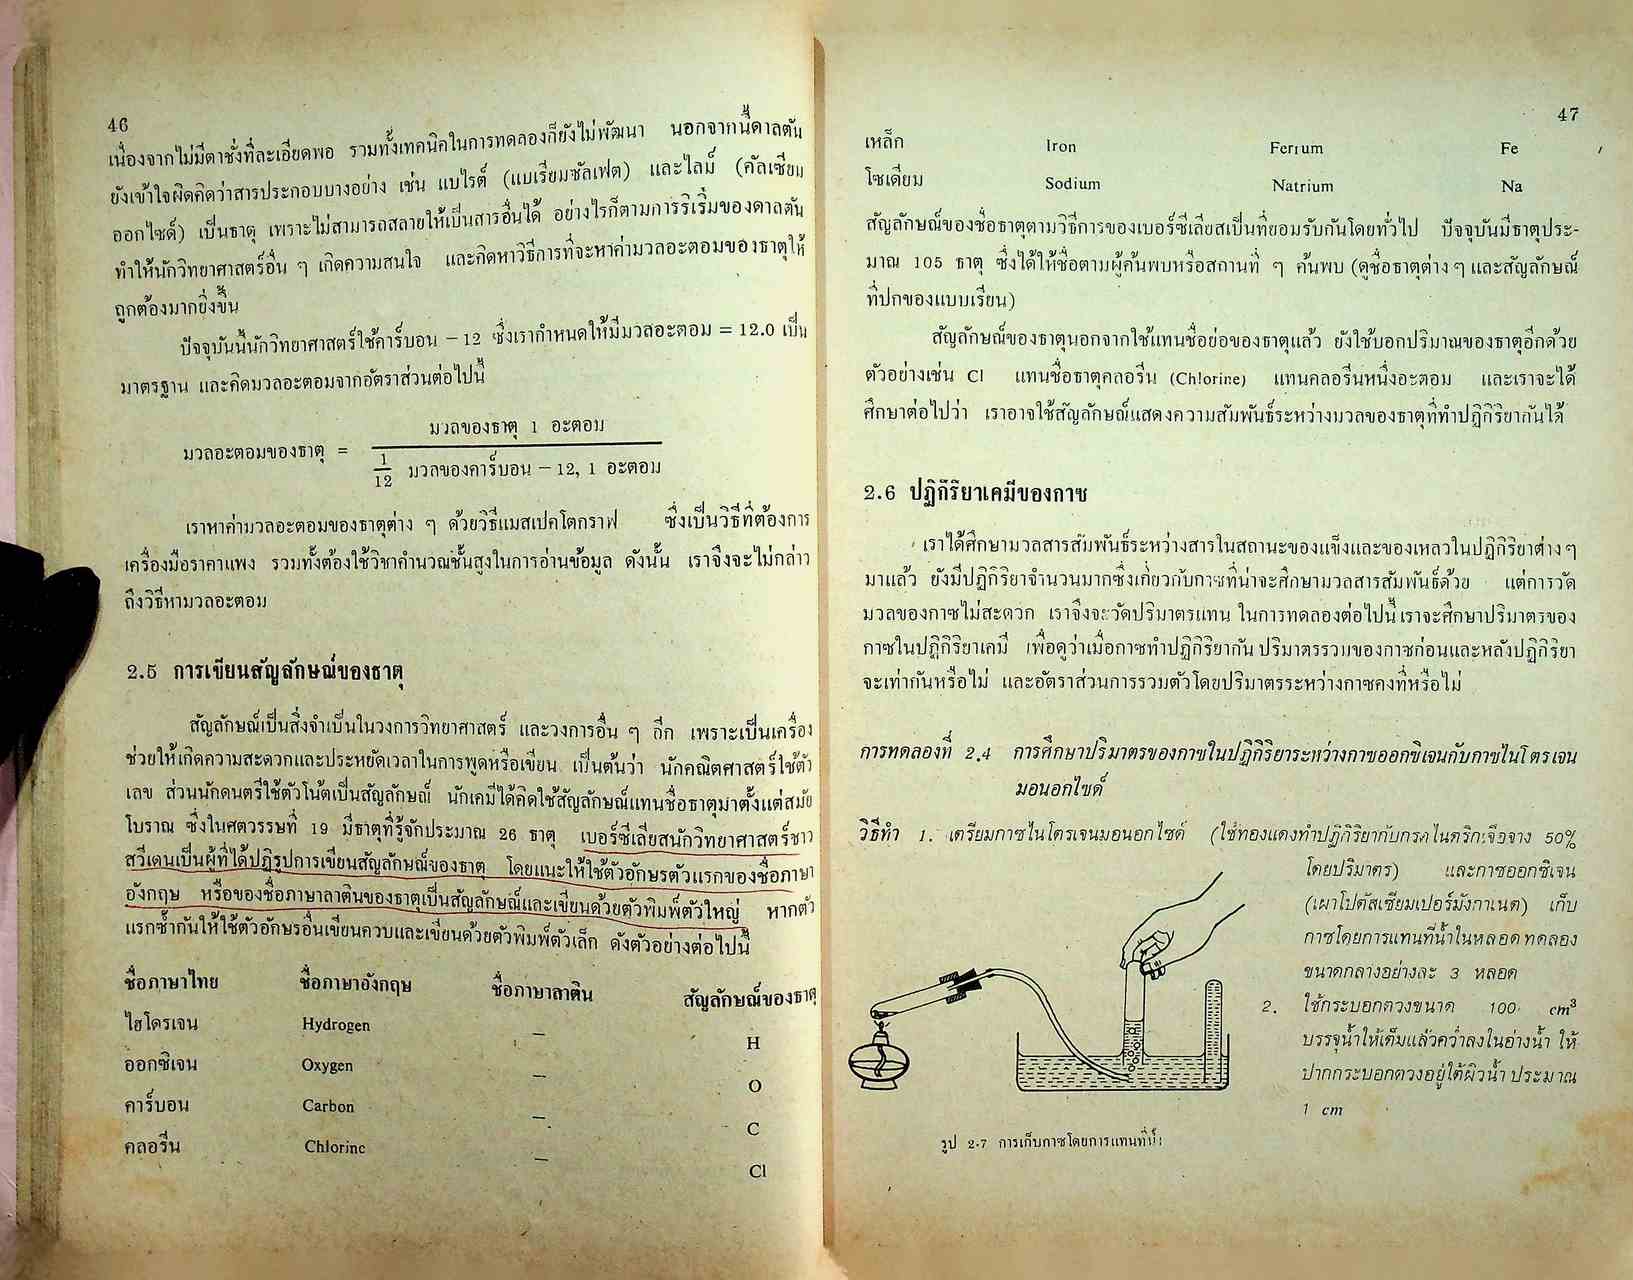 46
เนื่องจากไม่มีตาชั่งที่ละเอียดพอ รวมทั้งเทคนิคในการทดลองก็ยังไม่พัฒนา นอกจากนี้ดาลตัน
ยังเข้าใจผิดคิดว่าสารประกอบบางอย่าง เช่น แบไรต์ (แบเรียมซัลเฟต) และไลม์ (คัลเซียม
ออกไซด์) เป็นธาตุ เพราะไม่สามารถสลายให้เป็นสารอื่นได้ อย่างไรก็ตามการริเริ่มของดาลตัน
ทำให้นักวิทยาศาสตร์อื่น ๆ เกิดความสนใจ และคิดหาวิธีการที่จะหาค่ามวลอะตอมของธาตุให้
ถูกต้องมากยิ่งขึ้น
ปัจจุบันนี้นักวิทยาศาสตร์ใช้คาร์บอน −12 ซึ่งเรากำหนดให้มีมวลอะตอม = 12.0 เป็น
มาตรฐาน และคิดมวลอะตอมจากอัตราส่วนต่อไปนี้
มวลของธาตุ 1 อะตอม
มวลอะตอมของธาตุ =
1/12 มวลของคาร์บอน − 12, 1 อะตอม
เราหาค่ามวลอะตอมของธาตุต่าง ๆ ด้วยวิธีแมสเปคโตกราฟ ซึ่งเป็นวิธีที่ต้องการ
เครื่องมือราคาแพง รวมทั้งต้องใช้วิชาคำนวณชั้นสูงในการอ่านข้อมูล ดังนั้น เราจึงจะไม่กล่าว
ถึงวิธีหามวลอะตอม
2.5 การเขียนสัญลักษณ์ของธาตุ
สัญลักษณ์เป็นสิ่งจำเป็นในวงการวิทยาศาสตร์ และวงการอื่น ๆ อีก เพราะเป็นเครื่อง
ช่วยให้เกิดความสะดวกและประหยัดเวลาในการพูดหรือเขียน เป็นต้นว่า นักคณิตศาสตร์ใช้ตัว
เลข ส่วนนักดนตรีใช้ตัวโน้ตเป็นสัญลักษณ์ นักเคมีได้คิดใช้สัญลักษณ์แทนชื่อธาตุมาตั้งแต่สมัย
โบราณ ซึ่งในศตวรรษที่ 19 มีธาตุที่รู้จักประมาณ 26 ธาตุ เบอร์ซีเลียสนักวิทยาศาสตร์ชาว
สวีเดนเป็นผู้ที่ได้ปฏิรูปการเขียนสัญลักษณ์ของธาตุ โดยแนะให้ใช้ตัวอักษรตัวแรกของชื่อภาษา
อังกฤษ หรือของชื่อภาษาลาตินของธาตุเป็นสัญลักษณ์และเขียนด้วยตัวพิมพ์ตัวใหญ่ หากตัว
แรกซ้ำกันให้ใช้ตัวอักษรอื่นเขียนควบและเขียนด้วยตัวพิมพ์ตัวเล็ก ดังตัวอย่างต่อไปนี้
ชื่อภาษาไทย ชื่อภาษาอังกฤษ ชื่อภาษาลาติน สัญลักษณ์ของธาตุ
ไฮโดรเจน Hydrogen – H
ออกซิเจน Oxygen – O
คาร์บอน Carbon – C
คลอรีน Chlorine – Cl
47
เหล็ก Iron Ferrum Fe
โซเดียม Sodium Natrium Na
สัญลักษณ์ของชื่อธาตุตามวิธีการของเบอร์ซีเลียสเป็นที่ยอมรับกันโดยทั่วไป ปัจจุบันมีธาตุประ-
มาณ 105 ธาตุ ซึ่งได้ให้ชื่อตามผู้ค้นพบหรือสถานที่ ๆ ค้นพบ (ดูชื่อธาตุต่าง ๆ และสัญลักษณ์
ที่ปกของแบบเรียน)
สัญลักษณ์ของธาตุนอกจากใช้แทนชื่อย่อของธาตุแล้ว ยังใช้บอกปริมาณของธาตุอีกด้วย
ตัวอย่างเช่น Cl แทนชื่อธาตุคลอรีน (Chlorine) แทนคลอรีนหนึ่งอะตอม และเราจะได้
ศึกษาต่อไปว่า เราอาจใช้สัญลักษณ์แสดงความสัมพันธ์ระหว่างมวลของธาตุที่ทำปฏิกิริยากันได้
2.6 ปฏิกิริยาเคมีของกาซ
เราได้ศึกษามวลสารสัมพันธ์ระหว่างสารในสถานะของแข็งและของเหลวในปฏิกิริยาต่าง ๆ
มาแล้ว ยังมีปฏิกิริยาจำนวนมากซึ่งเกี่ยวกับกาซที่น่าจะศึกษามวลสารสัมพันธ์ด้วย แต่การวัด
มวลของกาซไม่สะดวก เราจึงจะวัดปริมาตรแทน ในการทดลองต่อไปนี้เราจะศึกษาปริมาตรของ
กาซในปฏิกิริยาเคมี เพื่อดูว่าเมื่อกาซทำปฏิกิริยากัน ปริมาตรรวมของกาซก่อนและหลังปฏิกิริยา
จะเท่ากันหรือไม่ และอัตราส่วนการรวมตัวโดยปริมาตรระหว่างกาซคงที่หรือไม่
การทดลองที่ 2.4 การศึกษาปริมาตรของกาซในปฏิกิริยาระหว่างกาซออกซิเจนกับกาซไนโตรเจน
มอนอกไซด์
วิธีทำ 1. เตรียมกาซไนโตรเจนมอนอกไซด์ (ใช้ทองแดงทำปฏิกิริยากับกรดไนตริกเจือจาง 50%
โดยปริมาตร) และกาซออกซิเจน
(เผาโปตัสเซียมเปอร์มังกาเนต) เก็บ
กาซโดยการแทนที่น้ำในหลอดทดลอง
ขนาดกลางอย่างละ 3 หลอด
2. ใช้กระบอกตวงขนาด 100 cm³
บรรจุน้ำให้เต็มแล้วคว่ำลงในอ่างน้ำ ให้
ปากกระบอกตวงอยู่ใต้ผิวน้ำ ประมาณ
1 cm
รูป 2-7 การเก็บกาซโดยการแทนที่น้ำ